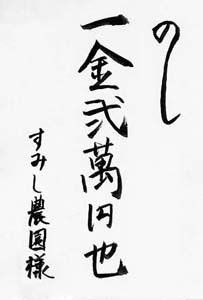 のし
一金弐萬円也
すみし農園様